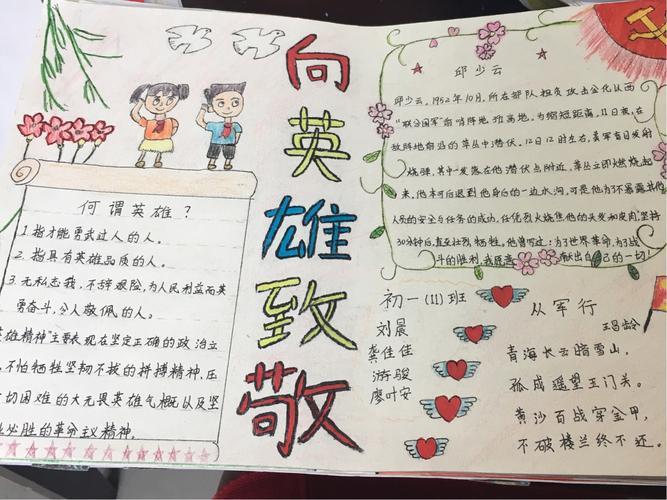 向英雄致敬
何谓英雄？
1.指才能勇武过人的人。
2.指具有英雄品质的人。
3.无私忘我，不辞艰险，为人民利益而英
勇奋斗，令人敬佩的人。
英雄精神"主要表现在坚定正确的政治立
不怕牺牲坚韧不拔的拼搏精神，压
切困难的大无畏英雄气概以及坚
必胜的革命主义精神。
邱少云
邱少云，1952年10月，所在部队担负攻击金化以西
"联合国军"前哨阵地391高地。为缩短距离，11日夜，在
敌阵地前沿的草丛中潜伏。12日12时左右，美军盲目发射
烧弹，其中一发落在他潜伏点附近，草丛立即燃烧起
来，他本可后退到他身后的一边水沟，可是他为了不暴露其他
人员的安全与任务的成功，任凭烈火烧焦他的头发和皮肉，坚持
30分钟后，直至壮烈牺牲。他曾写过：为了世界革命，为了战
斗的胜利，我愿意献出自己的一切！
初一(11)班
刘晨
龚佳佳
游骏
廖叶安
从军行
王昌龄
青海长云暗雪山，
孤城遥望玉门关。
黄沙百战穿金甲，
不破楼兰终不还。